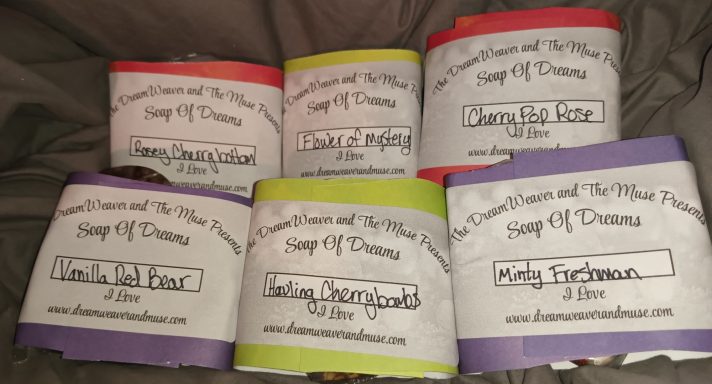 The DreamWeaver and The Muse Presents
Soap Of Dreams
Rosey Cherrybottom
I Love
www.dreamweaverandmuse.com
The DreamWeaver and The Muse Presents
Soap Of Dreams
Flower of Mystery
I Love
The DreamWeaver and The Muse Presents
Soap Of Dreams
Cherry Pop Rose
I Love
www.dreamweaverandmuse
The DreamWeaver and The Muse Presents
Soap Of Dreams
Vanilla Red Bear
I Love
www.dreamweaverandmuse.com
The DreamWeaver and The Muse Presents
Soap Of Dreams
Hauling Cherrybombs
I Love
www.dreamweaverandmuse.com
The DreamWeaver and The Muse Presents
Soap Of Dreams
Minty Freshman
I Love
www.dreamweaverandmuse.com